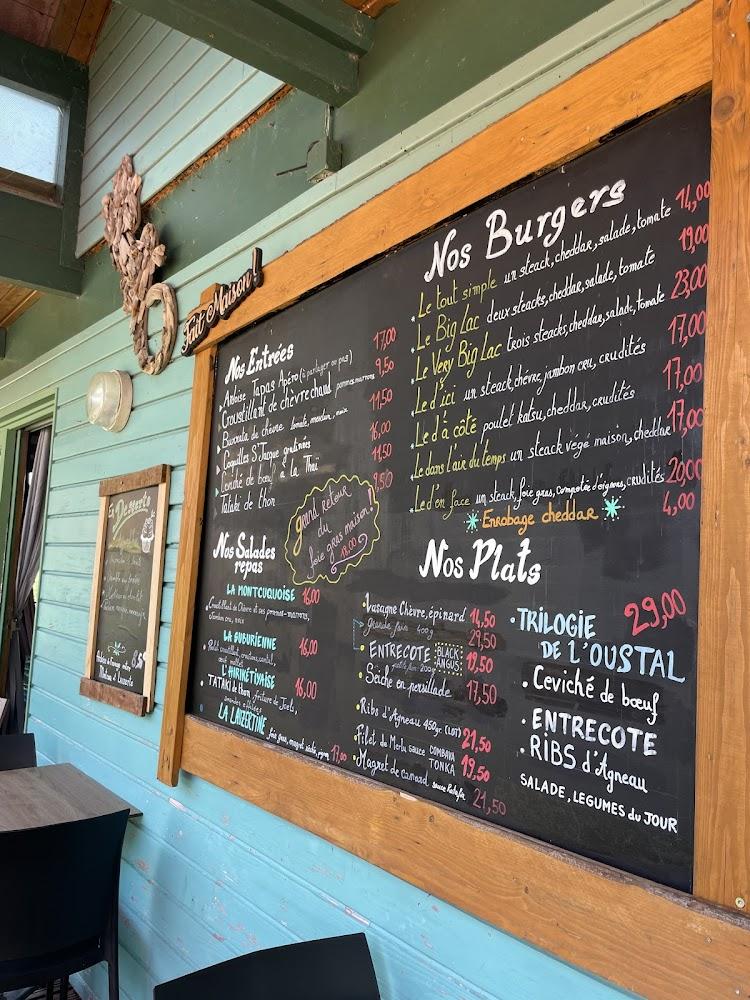 Fait Maison!
Nos Entrées
Ardoise Tapas Apéro (à partager ou pas) 17,00
Croustillant de chèvre chaud pommes marrons 9,50
Burrata de chèvre tomate, melon, noix 11,50
Coquilles St Jacque gratinées 16,00
Ceviché de bœuf à la Thaï 11,50
Tataki de thon 9,50
grand retour
du
foie gras maison!
18,00
Nos Salades
repas
LA MONTCUQUOISE 16,00
Croustillant de Chèvre et ses pommes-marrons,
Jambon cru, noix
16,00
16,00
TATAKI de thon, friture de Joels,
LA LAUZERTINE foie gras, magret séché, 17,00
Nos Burgers
Le tout simple un steack, cheddar, salade, tomate 14,00
Le Big Lac deux steacks, cheddar, salade, tomate 19,00
Le Very Big Lac trois steacks, cheddar, salade, tomate 23,00
Le d'ici un steack, chèvre, jambon cru, crudités 17,00
Le d'à côté poulet katsu, cheddar, crudités 17,00
Le dans l'air du temps un steack végé maison, cheddar 17,00
Le d'en face un steack, foie gras, compotée d'oignons, crudités 20,00
Enrobage cheddar 4,00
Nos Plats
Lasagne Chèvre, épinard 14,50
grande faim 400g 29,50
ENTRECOTE BLACK ANGUS
petite faim 200g 19,50
Sèche en persillade 17,50
Ribs d'Agneau 450gr. (LOT) 21,50
Filet de Merlu sauce COMBAVA TONKA 19,50
Magret de canard sauce 21,50
TRILOGIE 29,00
DE L'OUSTAL
Ceviché de bœuf
ENTRECOTE
RIBS d'Agneau
SALADE, LEGUMES du JOUR
Desserts